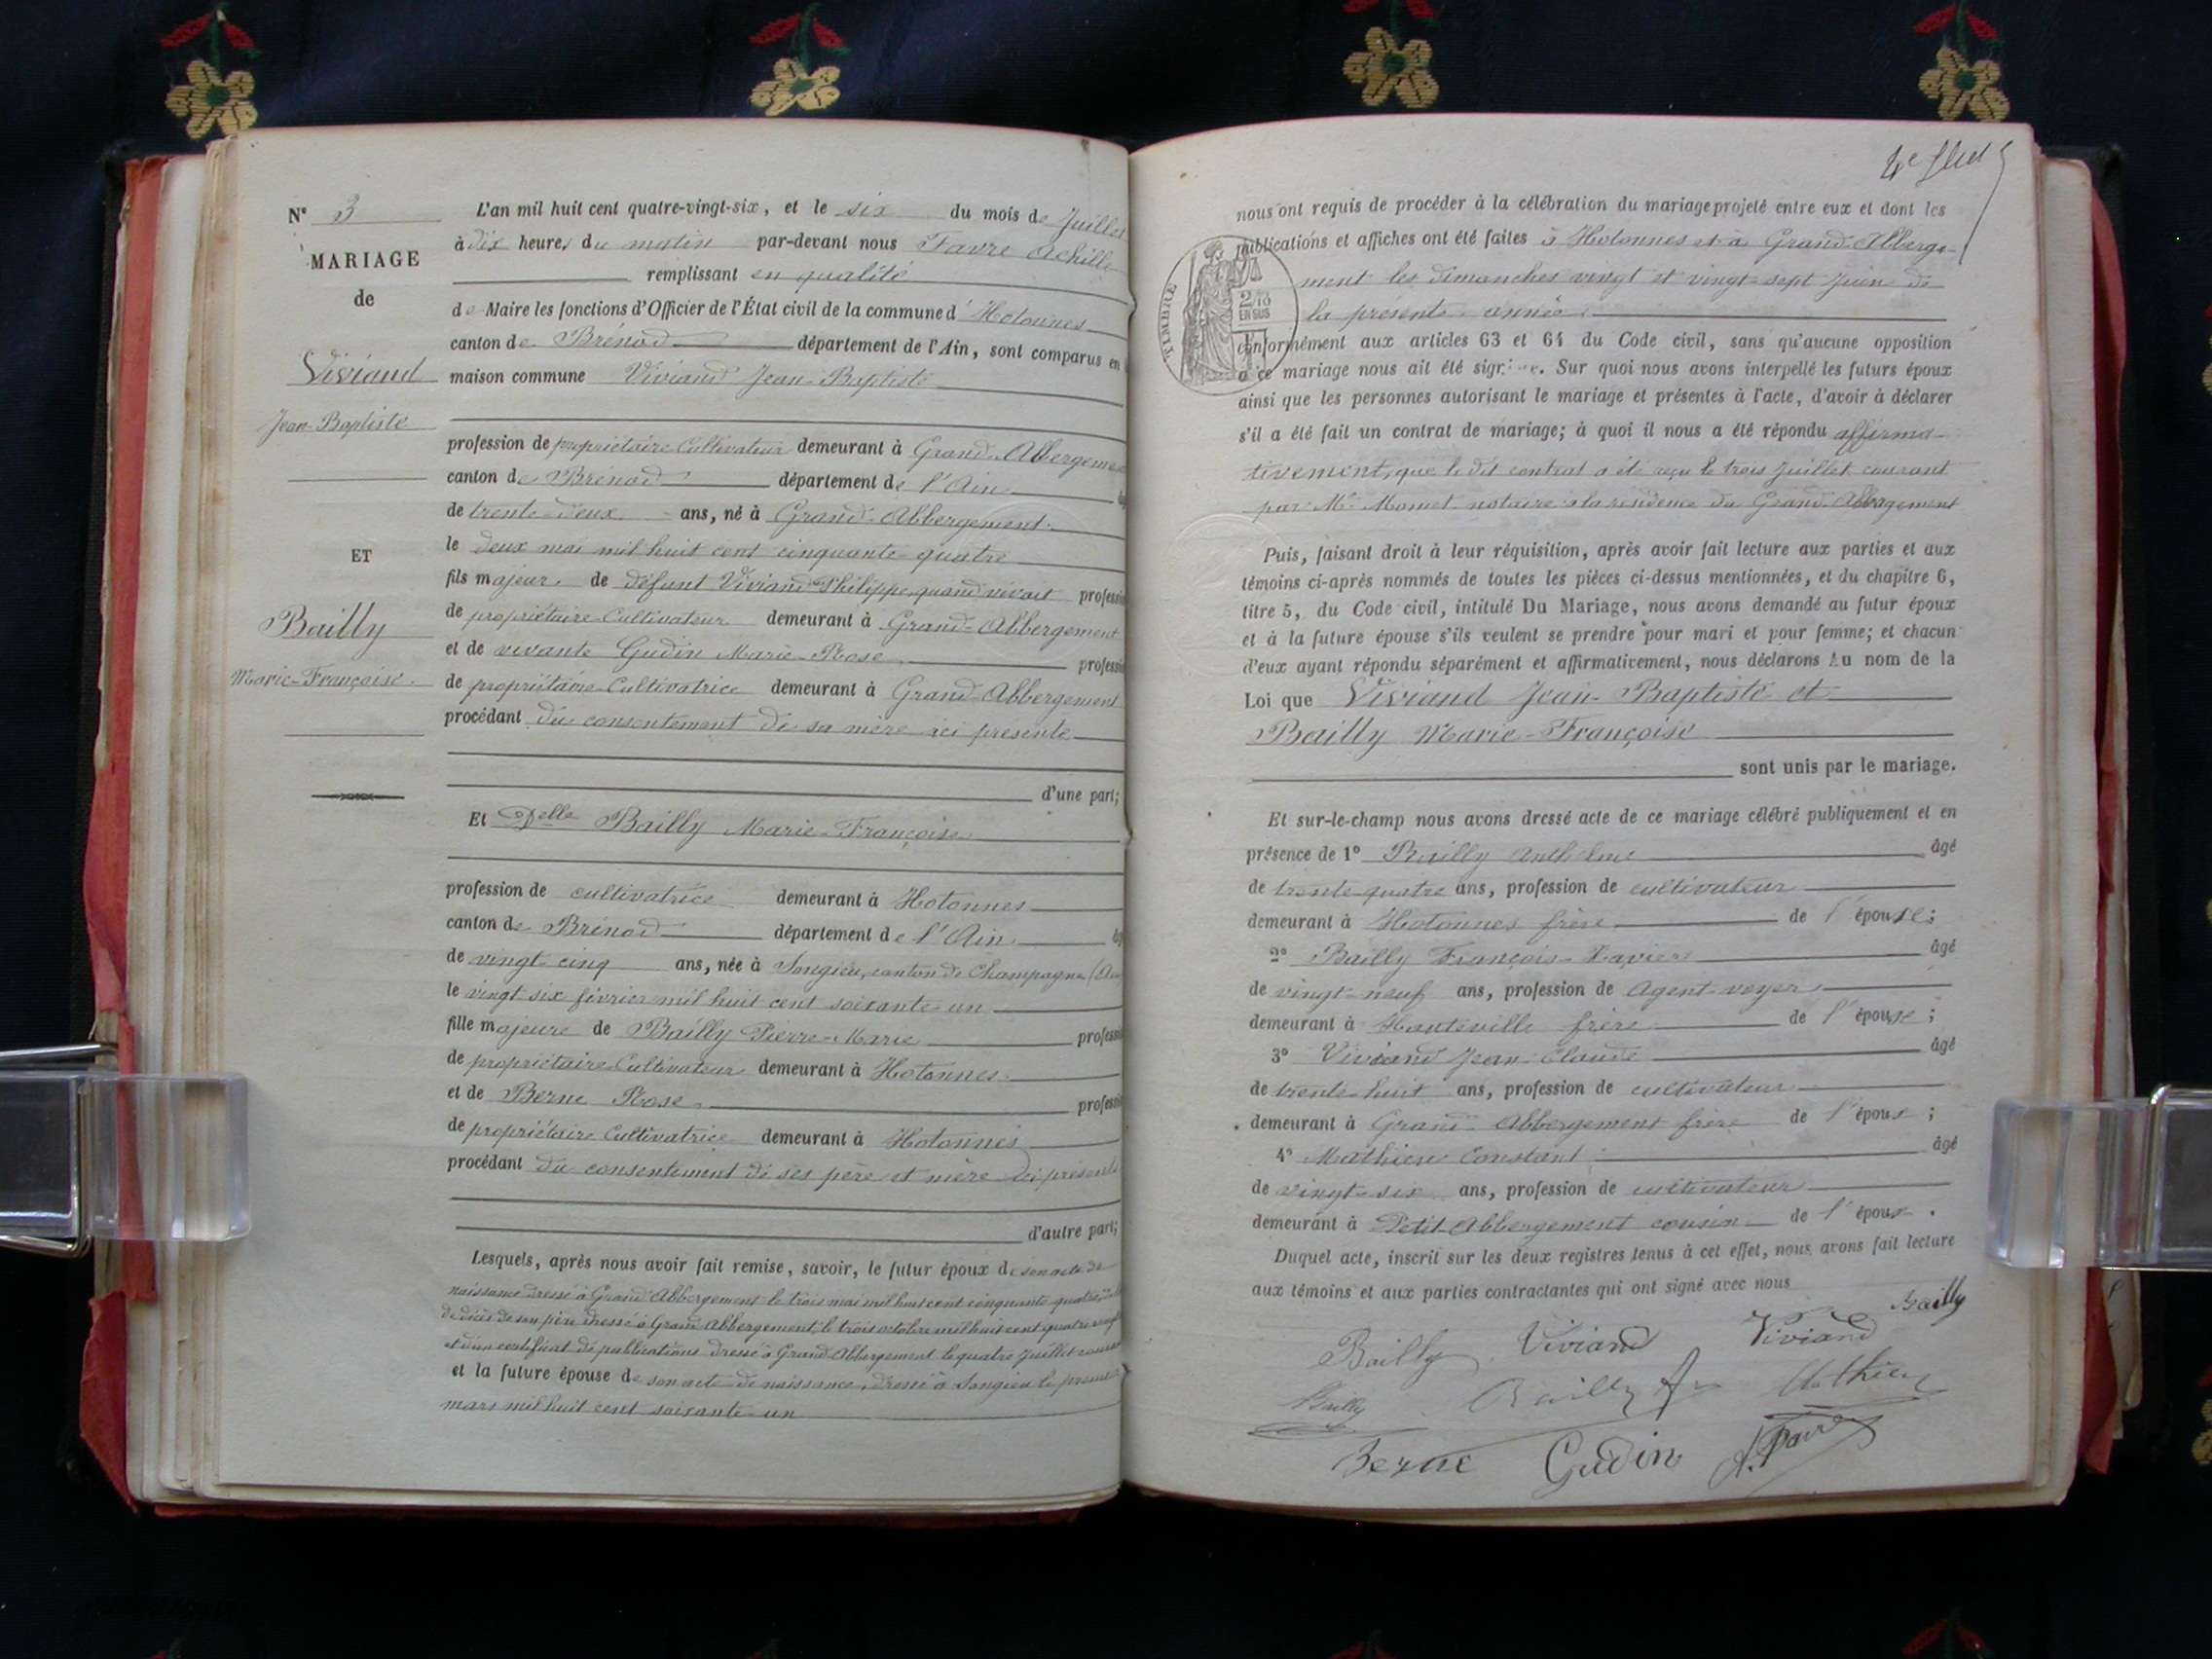 N° 3
MARIAGE
de
Viviand
Jean-Baptiste
ET
Bailly
Marie-Françoise.
L'an mil huit cent quatre-vingt-six, et le six du mois de Juillet
à dix heures du matin par-devant nous Favre Achille
remplissant en qualité
de Maire les fonctions d'Officier de l'État civil de la commune d'Hotonnes
canton de Brénod département de l'Ain, sont comparus en
maison commune Viviand Jean-Baptiste
profession de propriétaire Cultivateur demeurant à Grand-Abbergement
canton de Brénod département de l'Ain
de trente-deux ans, né à Grand-Abbergement
le deux mai mil huit cent cinquante-quatre
fils majeur de défunt Viviand Philippe, quand vivait profession
de propriétaire-Cultivateur demeurant à Grand-Abbergement
et de vivante Gudin Marie-Rose profession
de propriétaire-Cultivatrice demeurant à Grand-Abbergement
procédant du consentement de sa mère ici présente
d'une part;
Et Delle Bailly Marie-Françoise
profession de cultivatrice demeurant à Hotonnes
canton de Brénod département de l'Ain
de vingt-cinq ans, née à Songieu, canton de Champagne (Ain
le vingt-six février mil huit cent soixante-un
fille majeure de Bailly Pierre-Marie profession
de propriétaire Cultivateur demeurant à Hotonnes
et de Berne Rose profession
de propriétaire Cultivatrice demeurant à Hotonnes
procédant du consentement de ses père et mère ici présents
d'autre part;
Lesquels, après nous avoir fait remise, savoir, le futur époux de son acte de
naissance dressé à Grand Abbergement le trois mai mil huit cent cinquante-quatre,
de décès de son père dressé à Grand Abbergement, le trois octobre mil huit cent quatre
et d'un certificat de publications dressé à Grand Abbergement le quatre Juillet courant
et la future épouse de son acte de naissance, dressé à Songieu le premier
mars mil huit cent soixante-un
nous ont requis de procéder à la célébration du mariage projeté entre eux et dont les
publications et affiches ont été faites à Hotonnes et à Grand-Abberge-
ment les dimanches vingt et vingt-sept Juin de
la présente année
TIMBRE
2/10
EN SUS
conformément aux articles 63 et 64 du Code civil, sans qu'aucune opposition
à ce mariage nous ait été signifiée. Sur quoi nous avons interpellé les futurs époux
ainsi que les personnes autorisant le mariage et présentes à l'acte, d'avoir à déclarer
s'il a été fait un contrat de mariage; à quoi il nous a été répondu affirma-
tivement, que le dit contrat a été reçu le trois Juillet courant
par Me Mamet notaire à la résidence du Grand-Abbergement
Puis, faisant droit à leur réquisition, après avoir fait lecture aux parties et aux
témoins ci-après nommés de toutes les pièces ci-dessus mentionnées, et du chapitre 6,
titre 5, du Code civil, intitulé Du Mariage, nous avons demandé au futur époux
et à la future épouse s'ils veulent se prendre pour mari et pour femme; et chacun
d'eux ayant répondu séparément et affirmativement, nous déclarons Au nom de la
Loi que Viviand Jean-Baptiste et
Bailly Marie-Françoise
sont unis par le mariage.
Et sur-le-champ nous avons dressé acte de ce mariage célébré publiquement et en
présence de 1° Bailly Anthelme âgé
de trente-quatre ans, profession de cultivateur
demeurant à Hotonnes frère de l'épouse;
2° Bailly François-Xavier âgé
de vingt-neuf ans, profession de Agent-voyer
demeurant à Hauteville frère de l'épouse;
3° Viviand Jean-Claude âgé
de trente-huit ans, profession de cultivateur
demeurant à Grand-Abbergement frère de l'époux;
4° Mathieu Constant âgé
de vingt-six ans, profession de cultivateur
demeurant à Petit-Abbergement cousin de l'époux.
Duquel acte, inscrit sur les deux registres tenus à cet effet, nous avons fait lecture
aux témoins et aux parties contractantes qui ont signé avec nous
Bailly
Bailly Viviand Viviand
Bailly Bailly Mathieu
Berne Gudin A. Favre